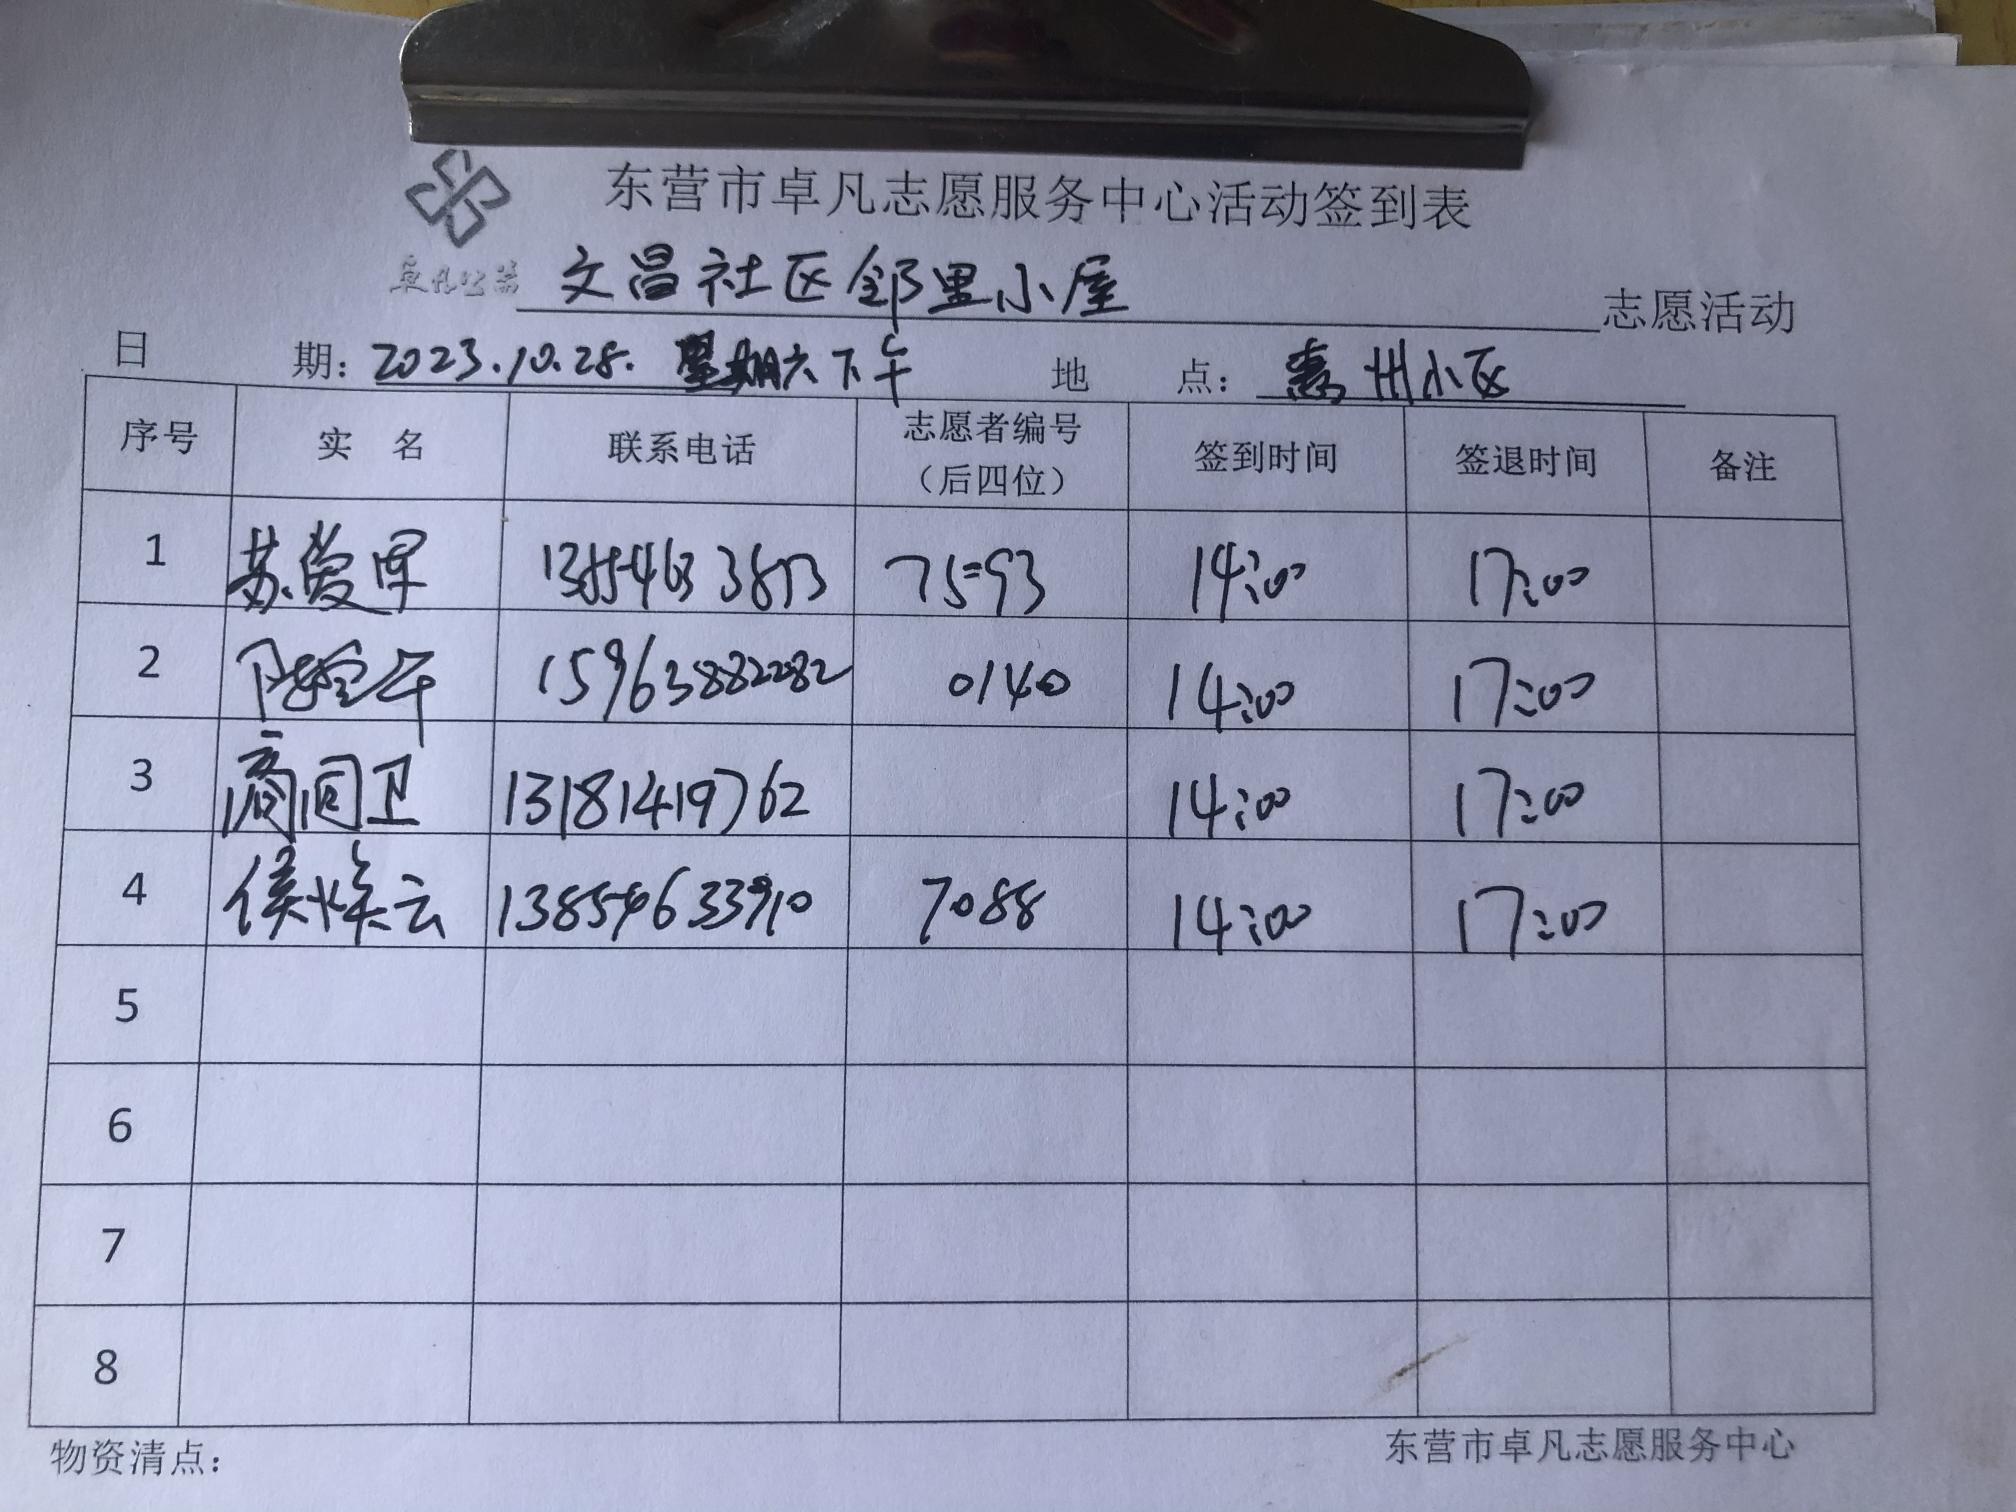 东营市卓凡志愿服务中心活动签到表
卓凡公益 文昌社区邻里小屋 志愿活动
日 期：2023.10.28. 星期六下午 地 点：惠州小区
序号 实 名 联系电话 志愿者编号（后四位） 签到时间 签退时间 备注
1 苏爱军 7593 14:00 17:00
2 15963882282 0140 14:00 17:00
3 商同卫 13181419762 14:00 17:00
4 侯焕云 13854633910 7088 14:00 17:00
5
6
7
8
物资清点： 东营市卓凡志愿服务中心